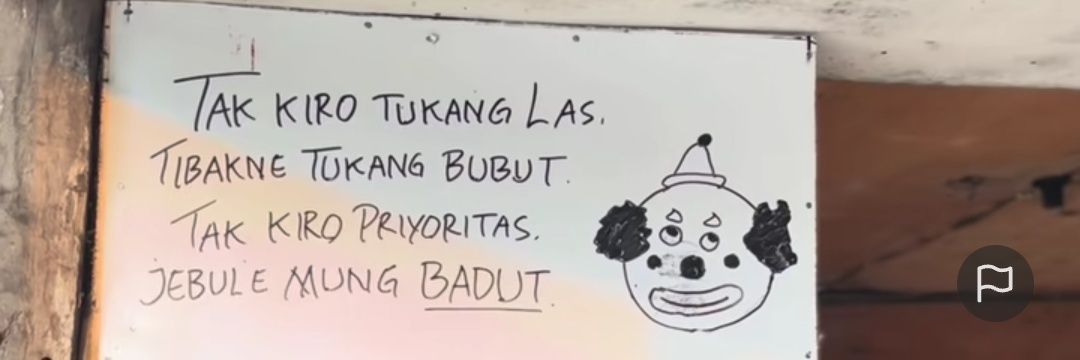 TAK KIRO TUKANG LAS.
TIBAKNE TUKANG BUBUT.
TAK KIRO PRIYORITAS.
JEBULE MUNG BADUT.